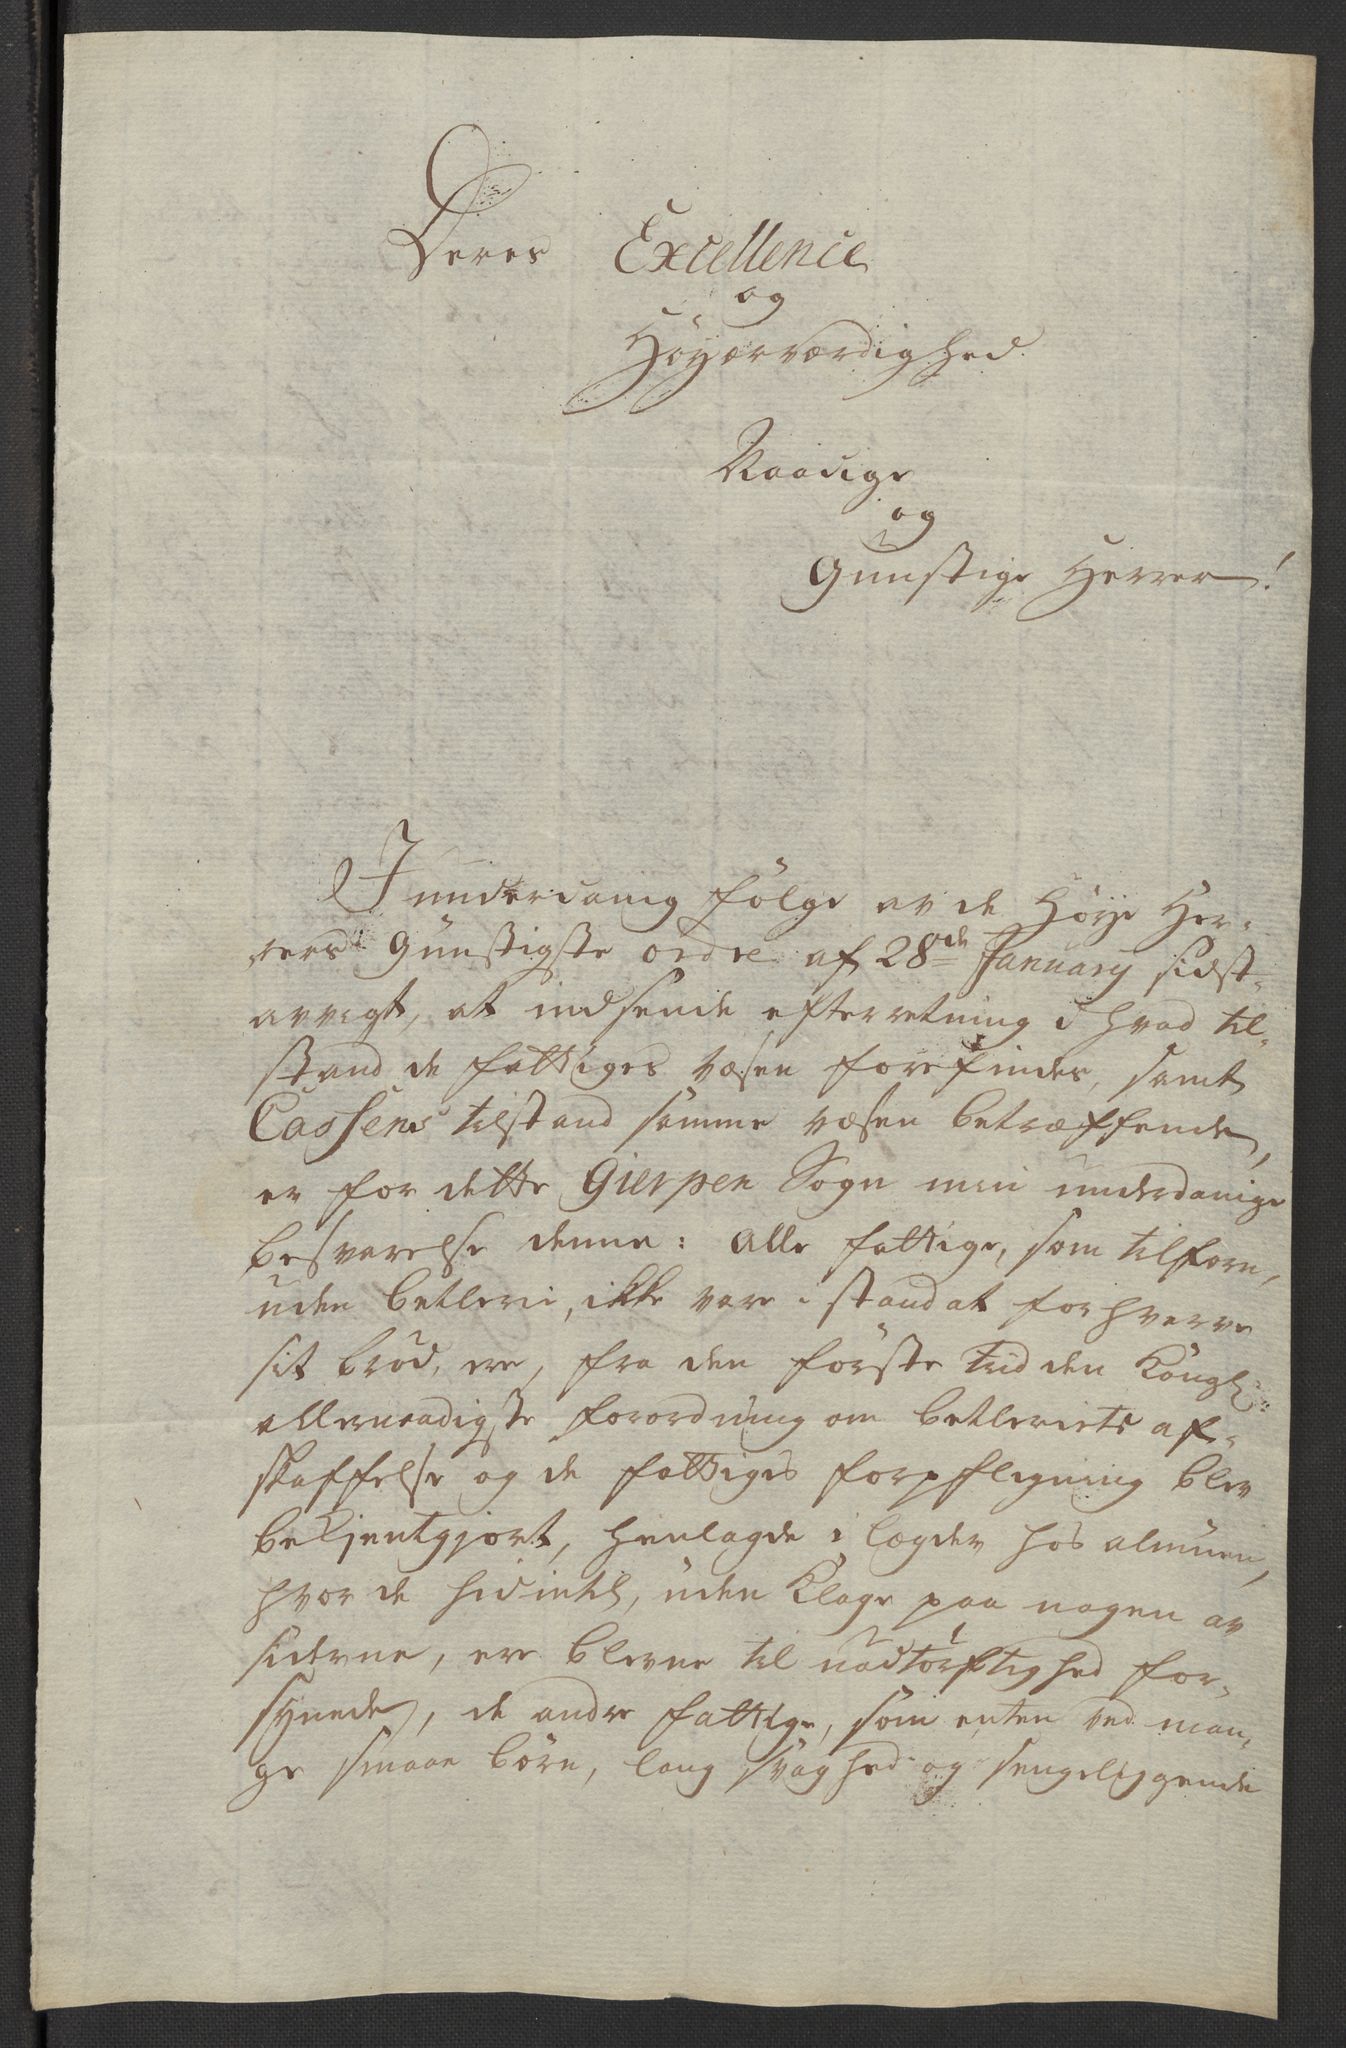 Deres Excellence
og
Höyærværdighed
Naadige
og
Gunstige Herrer!
I underdanig fölge av de Höye Her-
rers Gunstigste ordre af 28de January sidst-
avvigt, at indsende efterretning i hvad til-
stand de fattiges væsen forefindes, samt
Cassens tilstand samme væsen betræffende,
er for dette Gierpen Sogn min underdanige
besvarelse denne: Alle fattige, som tilforn,
uden betlerie, ikke vare i stand at forhverve
sit bröd, ere, fra den förste tiid den Kongl:
allernaadigste forordning om betleriets af-
skaffelse og de fattiges forpflegning blev
bekjentgjort, henlagde i lægder hos almuen,
hvor de hidintil, uden Klage paa nogen av
siderne, ere blevne til nödtörftighed for-
synede, de andre fattige, som enten ved man-
ge smaae börn, lang svaghed og sengeliggende